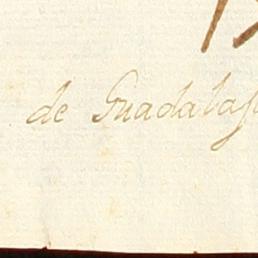 de Guadalaj